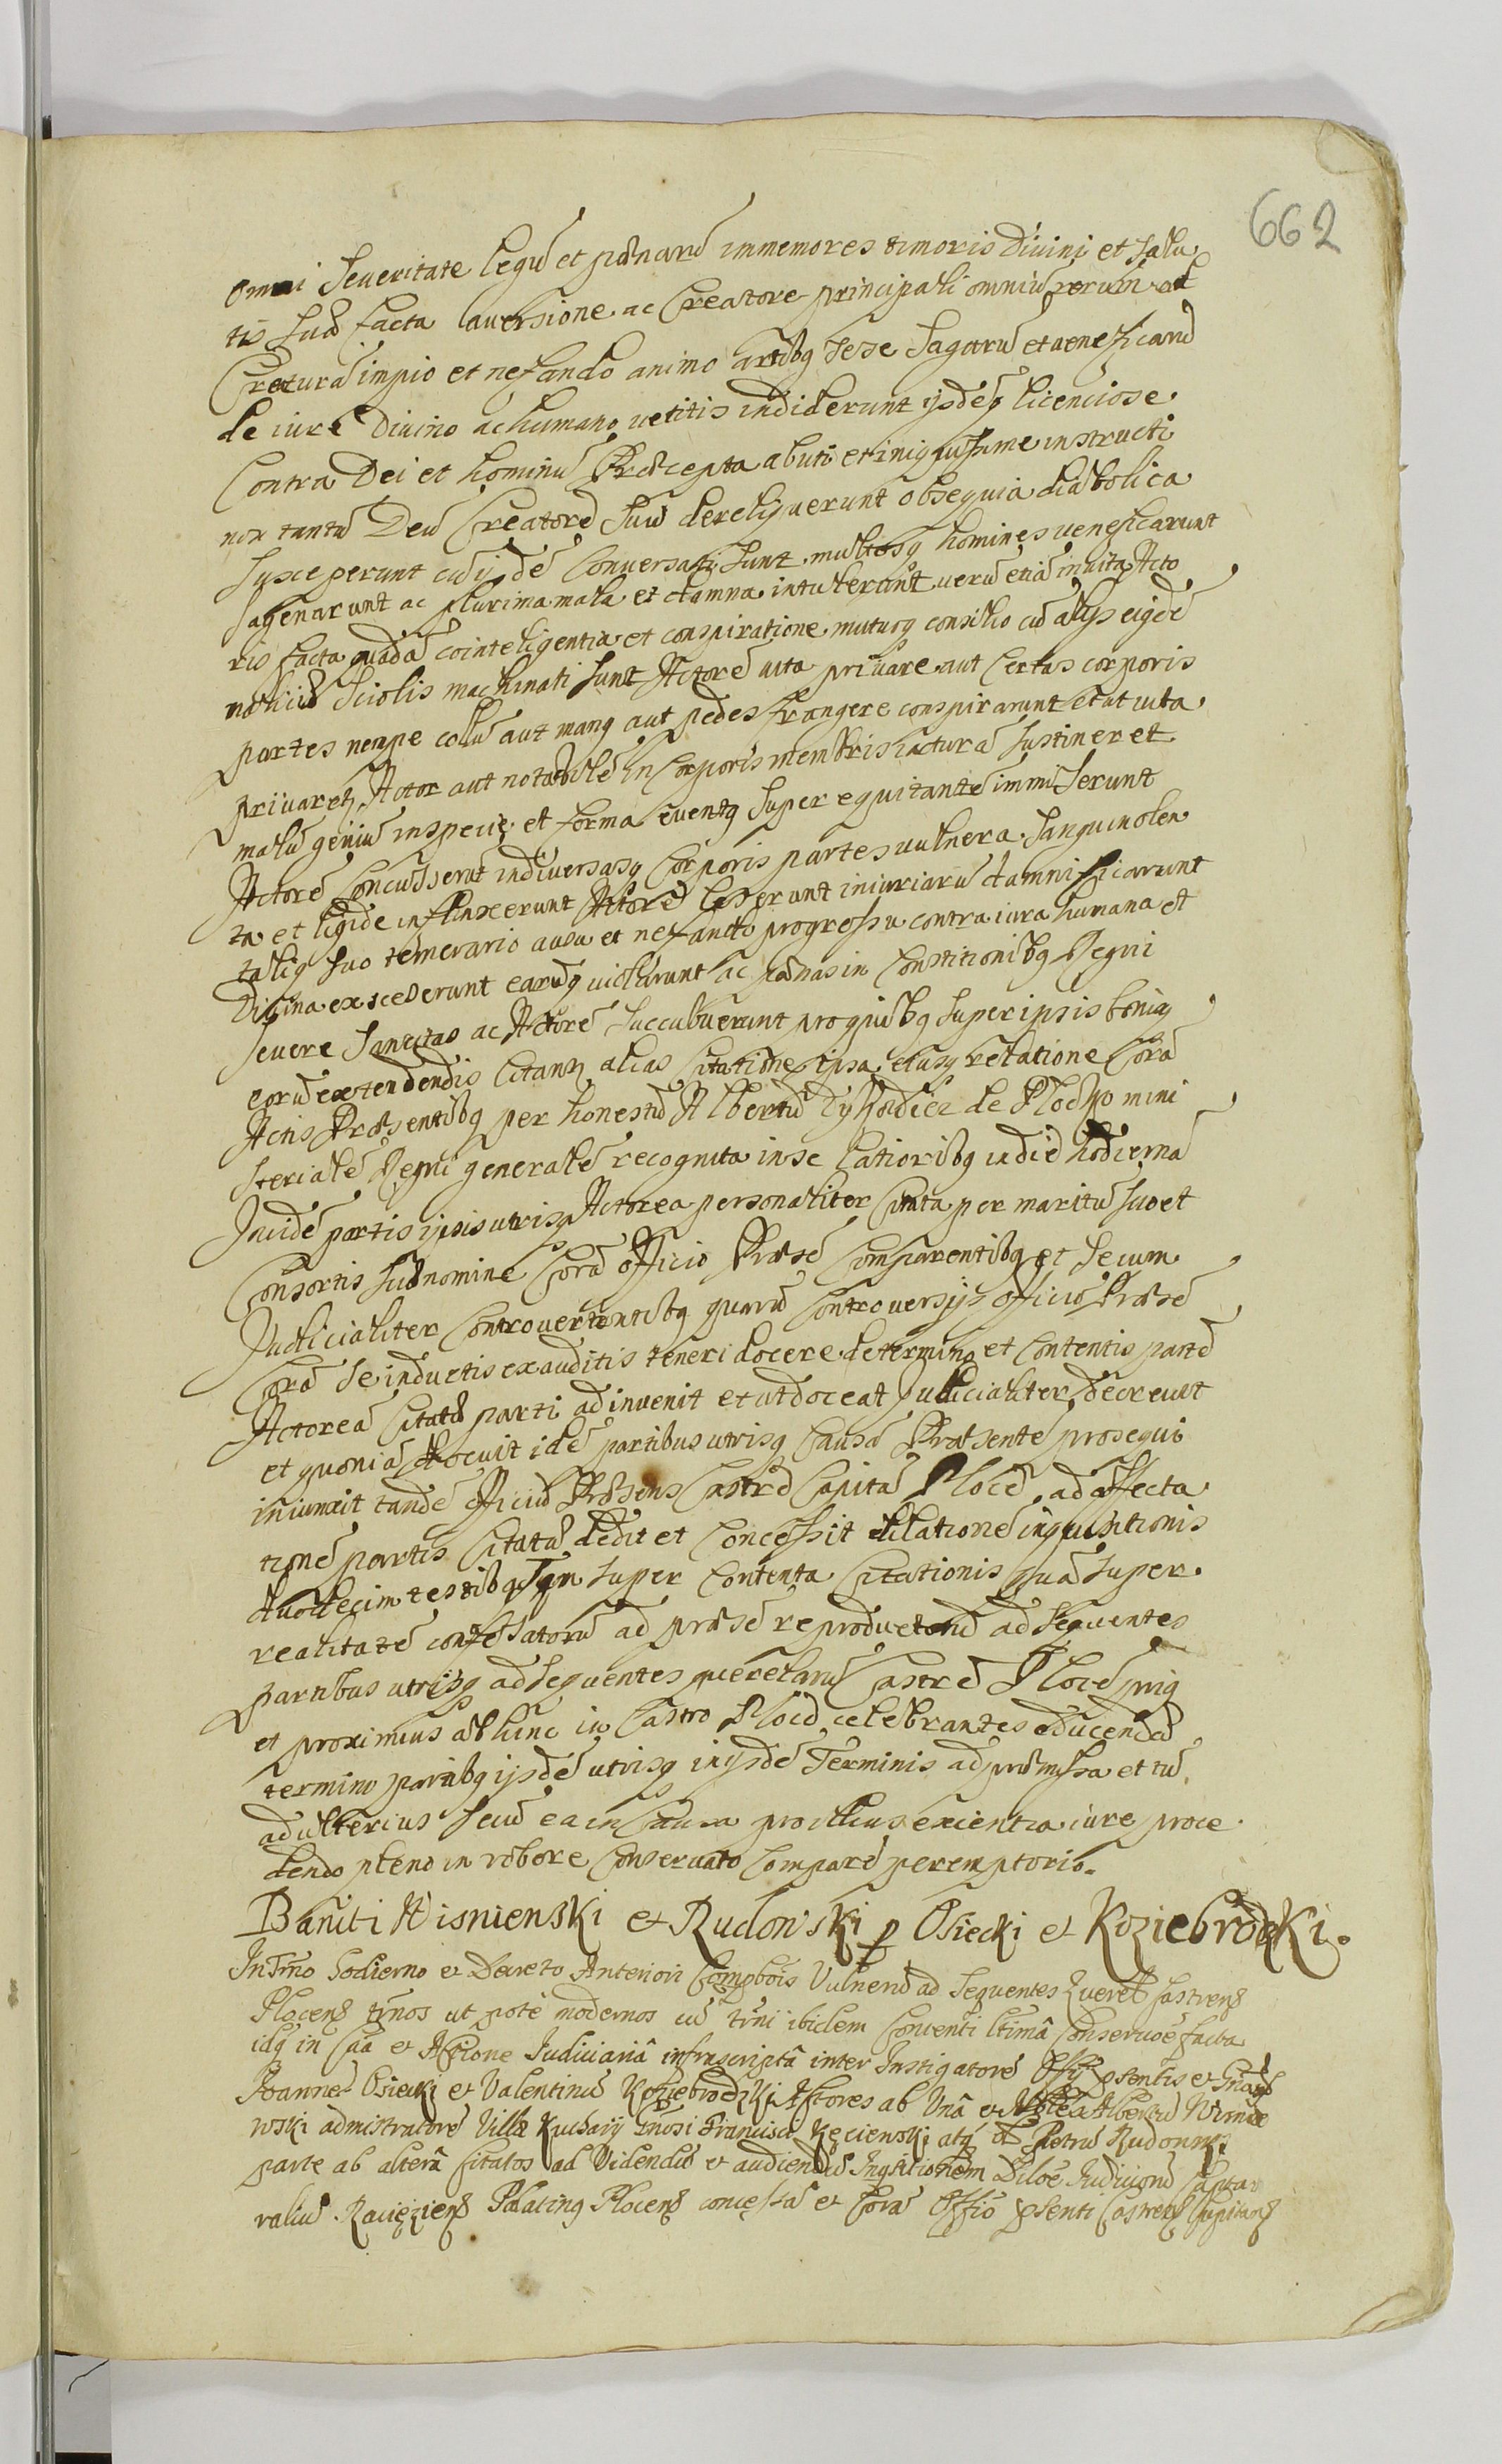 662
omni Severitate legū et pœnarū immemores timoris Divini et Salu
tis Suæ facta aversione ac Creatore principali omniū rerum ad
Creaturā impio et nefando animo artibq sese Sagarū et veneficarū
de iure Divino ac humano vetitis indiderunt ijsdēq licenciose
Contra Dei et hominū Præcepta abuti et iniquissime instructi
non tantū Deū Creatorē Suū dereliquerunt obsequia diabolica
Susceperunt cū ijsdē Conversati Sunt multosq homines veneficarunt
Sagenarunt ac plurima mala et damna intulerunt verū etiā in vita Acto
ris facta quadā cointeligentia et conspiratione mutuoq consilio cū alijs eiqdē
maliciæ Sciolis machinati Sunt Actorē vita privare aut certas corporis
partes nempe colū aut manq aut pedes frangere conspirarunt et ut vita
privaretʒ Actor aut notabilē in Corporis membris iacturā Sustineret
malū geniū in specie et forma Super equitantē immiserunt
Actorē Concusserūt in diversasq Corporis partes vulnera Sanguinolen
ta et livida inflinxerunt Actorē læserunt iniuriarū damnificarunt
taliq suo temerario ausu et nefando progressu contra iura humana et
Divina excesserunt earūq violarunt ac pœnas in Constitionibq Regni
Severe Sancitas ac Actorē Succubuerunt pro quibq Super ipsis boniq
eorū extendendis Citantʒ alias Citatione ipsa eiusq relatione Corā
Actis Præsentibq per honestū Albertū de Plocko mini
sterialē Regni generalē recognita in se latioribq in diē hodiernā
Inuidē partis ipsis utrisq Actorea personaliter Citata per maritū suo et
Consortis Suæ nomine Corā officio Præsē Comparentibq et Secum
Judicialiter Controvertentibq quarū Controversijs officiū Præsē
Corā Se inductis exauditis teneri docere de termino et Contentis partē
Actoreā Citatæ parti adinvenit et ut doceat Judicialiter decrevit
et quoniā docuit idē partibus utrisq Causā Præsentē prosequi
iniunxit tandē officiū Præsens Castrē Capitā Plocē ad affecta
tionē partis Citatæ dedit et Concessit dilationē inquisitionis
duodecim testibq Super Contenta Citationis Suæ Super
realitatē confessatorū ad præsē reproductorū ad Sequentes
partibus utrisq ad Sequentes querelarū Castrē Plocē
et proximius ab hinc in Castro Plocē celebrantes educendā
termino partibq ijsdē utrisq in ijsdē Terminis ad præmissa et tū
ad ulterius Secū ea in Causa pro illius exientia iure proce
dendo pleno in robore Conservato Comparē peremptorio.
Baniti Wisnienski et Rudowski p Osiecki et Koziebrodzki.
In Tmo hodierno et Decreto Anteriori Compbois Vulnerū ad Sequentes Querel Castrens
Plocens tmnos ut pote modernos cū tmni ibidem Conventi ltimā Conservoē facta
idq in Caā et Actione Judiciariā infrascriptā inter Instigatorē Offij psentis et Gnosos
Joannē Osiecki et Valentinū Koziebrodzki Actores ab Unā et Albertū Wisnie
wski admistratorē Villæ Kuchary Gnosi Francisci Kęcienski atq et Petrū Rudowski
parte ab alterā Citatos ad Videndū et audiendū Inqstionem Diloē Judiciorū Captu
raliū Raciążiens Palating Plocens concessā et Corā Offio psenti Castrens Capitans